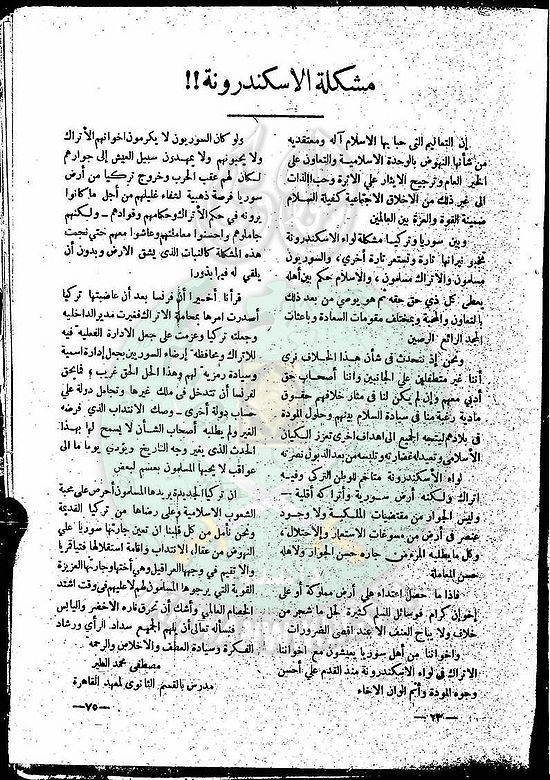 مشكلة الاسكندرونة !!
إن التعاليم التى حبا بها الاسلام آله ومعتقديه
من شأنها النهوض بالوحدة الاسلامية والتعاون على
الخير العام وترجيح الايثار على الاثرة وحب الذات
الى غير ذلك من الاخلاق الاجتماعية كفيلة السلام
ضمينة القوة والعزة بين العالمين
وبين سوريا وتركيا مشكلة لواء الاسكندرونة
تخبو نيرانها تارة وتستعر تارة أخرى، والسوريون
مسلمون والاتراك مسلمون، والاسلام حكم بين أهله
يعطى كل ذى حق حقه ثم هو يوصى من بعد ذلك
بالتعاون والمحبة وبمختلف مقومات السعادة وباعثات
المجد الرائع الرصين
ونحن إذ نتحدث فى شأن هذا الخلاف نرى
أننا غير متطفلين على الجانبين واننا أصحاب حق
أدبى معهم وإن لم يكن لنا فى مثار خلافهم حقوق
مادية رغبة منا فى سيادة السلام بينهم وحلول المودة
فى بلادهم ليتجه الجميع الى اهداف اخرى تعزز الكيان
الاسلامى وتعيد له غضارته وتلبسه من بعد الذبول نضرته
لواء الأسكندرونة متاخم للوطن التركى وفيه
اتراك ولكنه أرض سورية وأتراكه أقلية —
وليس الجوار من مقتضيات الملكية ولا وجود
عنصر فى أرض من مسوغات الاستعمار والاحتلال،
وكل ما يطلبه المرء من جاره حسن الجوار ولأهله
حسن المعاملة
فاذا ما حصل اعتداء على أرض مملوكة أو على
إخوان كرام فوسائل السلم كثيرة لحل ما شجر من
خلاف ولا يباح العنف الا عند اقصى الضرورات
واخواننا من أهل سوريا يعيشون مع اخواننا
الاتراك فى لواء الاسكندرونة منذ القدم على أحسن
وجوه المودة وأتم ألوان الاخاء
— ٧٣ —
ولو كان السوريون لا يكرمون اخوانهم الأتراك
ولا يحبونهم ولا يمهدون سبيل العيش إلى جوارهم
لكان لهم عقب الحرب وخروج تركيا من أرض
سوريا فرصة ذهبية لشفاء غليلهم من أجل ما كانوا
يرونه فى حكم الأتراك وحكامهم وقوادهم — ولكنهم
جاملوهم واحسنوا معاملتهم وعاشوا معهم حتى نجمت
هذه المشكلة كالنبات الذى يشق الارض وبدون أن
يلقى له فيها بذورا
قرأنا أخيرا أن فرنسا بعد أن غاضبتها تركيا
أصدرت امرها بمجاملة الاتراك فغيرت مدير الداخلية
وجعلته تركيا وعزمت على جعل الادارة الفعلية فيه
للاتراك ومحافظه إرضاء السوريين بجعل إدارة اسمية
وسيادة رمزية لهم وهذا الحل الحق غريب، فما بحق
لفرنسا أن تتدخل فى ملك غيرها وتجامل دولة على
حساب دولة أخرى — وصك الانتداب الذى فرضه
الغير ولم يطلبه أصحاب الشأن لا يسمح لها بهذا
الحدث الذى يغير وجه التاريخ ويؤدى يوما ما الى
عواقب لا يحبها المسلمون بعضهم لبعض
ان تركيا الجديدة يريدها المسلمون أحرص على محبة
الشعوب الاسلامية وعلى رضاها من تركيا القديمة
ونحن نأمل من كل قلبنا ان تعين جارتها سوريا على
النهوض من عقال الانتداب واقامة استقلالها فتيا قريبا
والا تقيم فى وجهها العراقيل وهى أختها وجارتها العزيزة
القوية التى يرجوها المسلمون لهم لا عليهم فى وقت اشتد
الخصام العالمى وأشك أن تحرق ناره الاخضر واليابس
فنسأله تعالى أن يلهم الجميع سداد الرأى ورشاد
الفكرة وسيادة العطف والاخلاص والرحمة
مصطفى محمد الطير
مدرس بالقسم الثانوى لمعهد القاهرة
— ٧٥ —